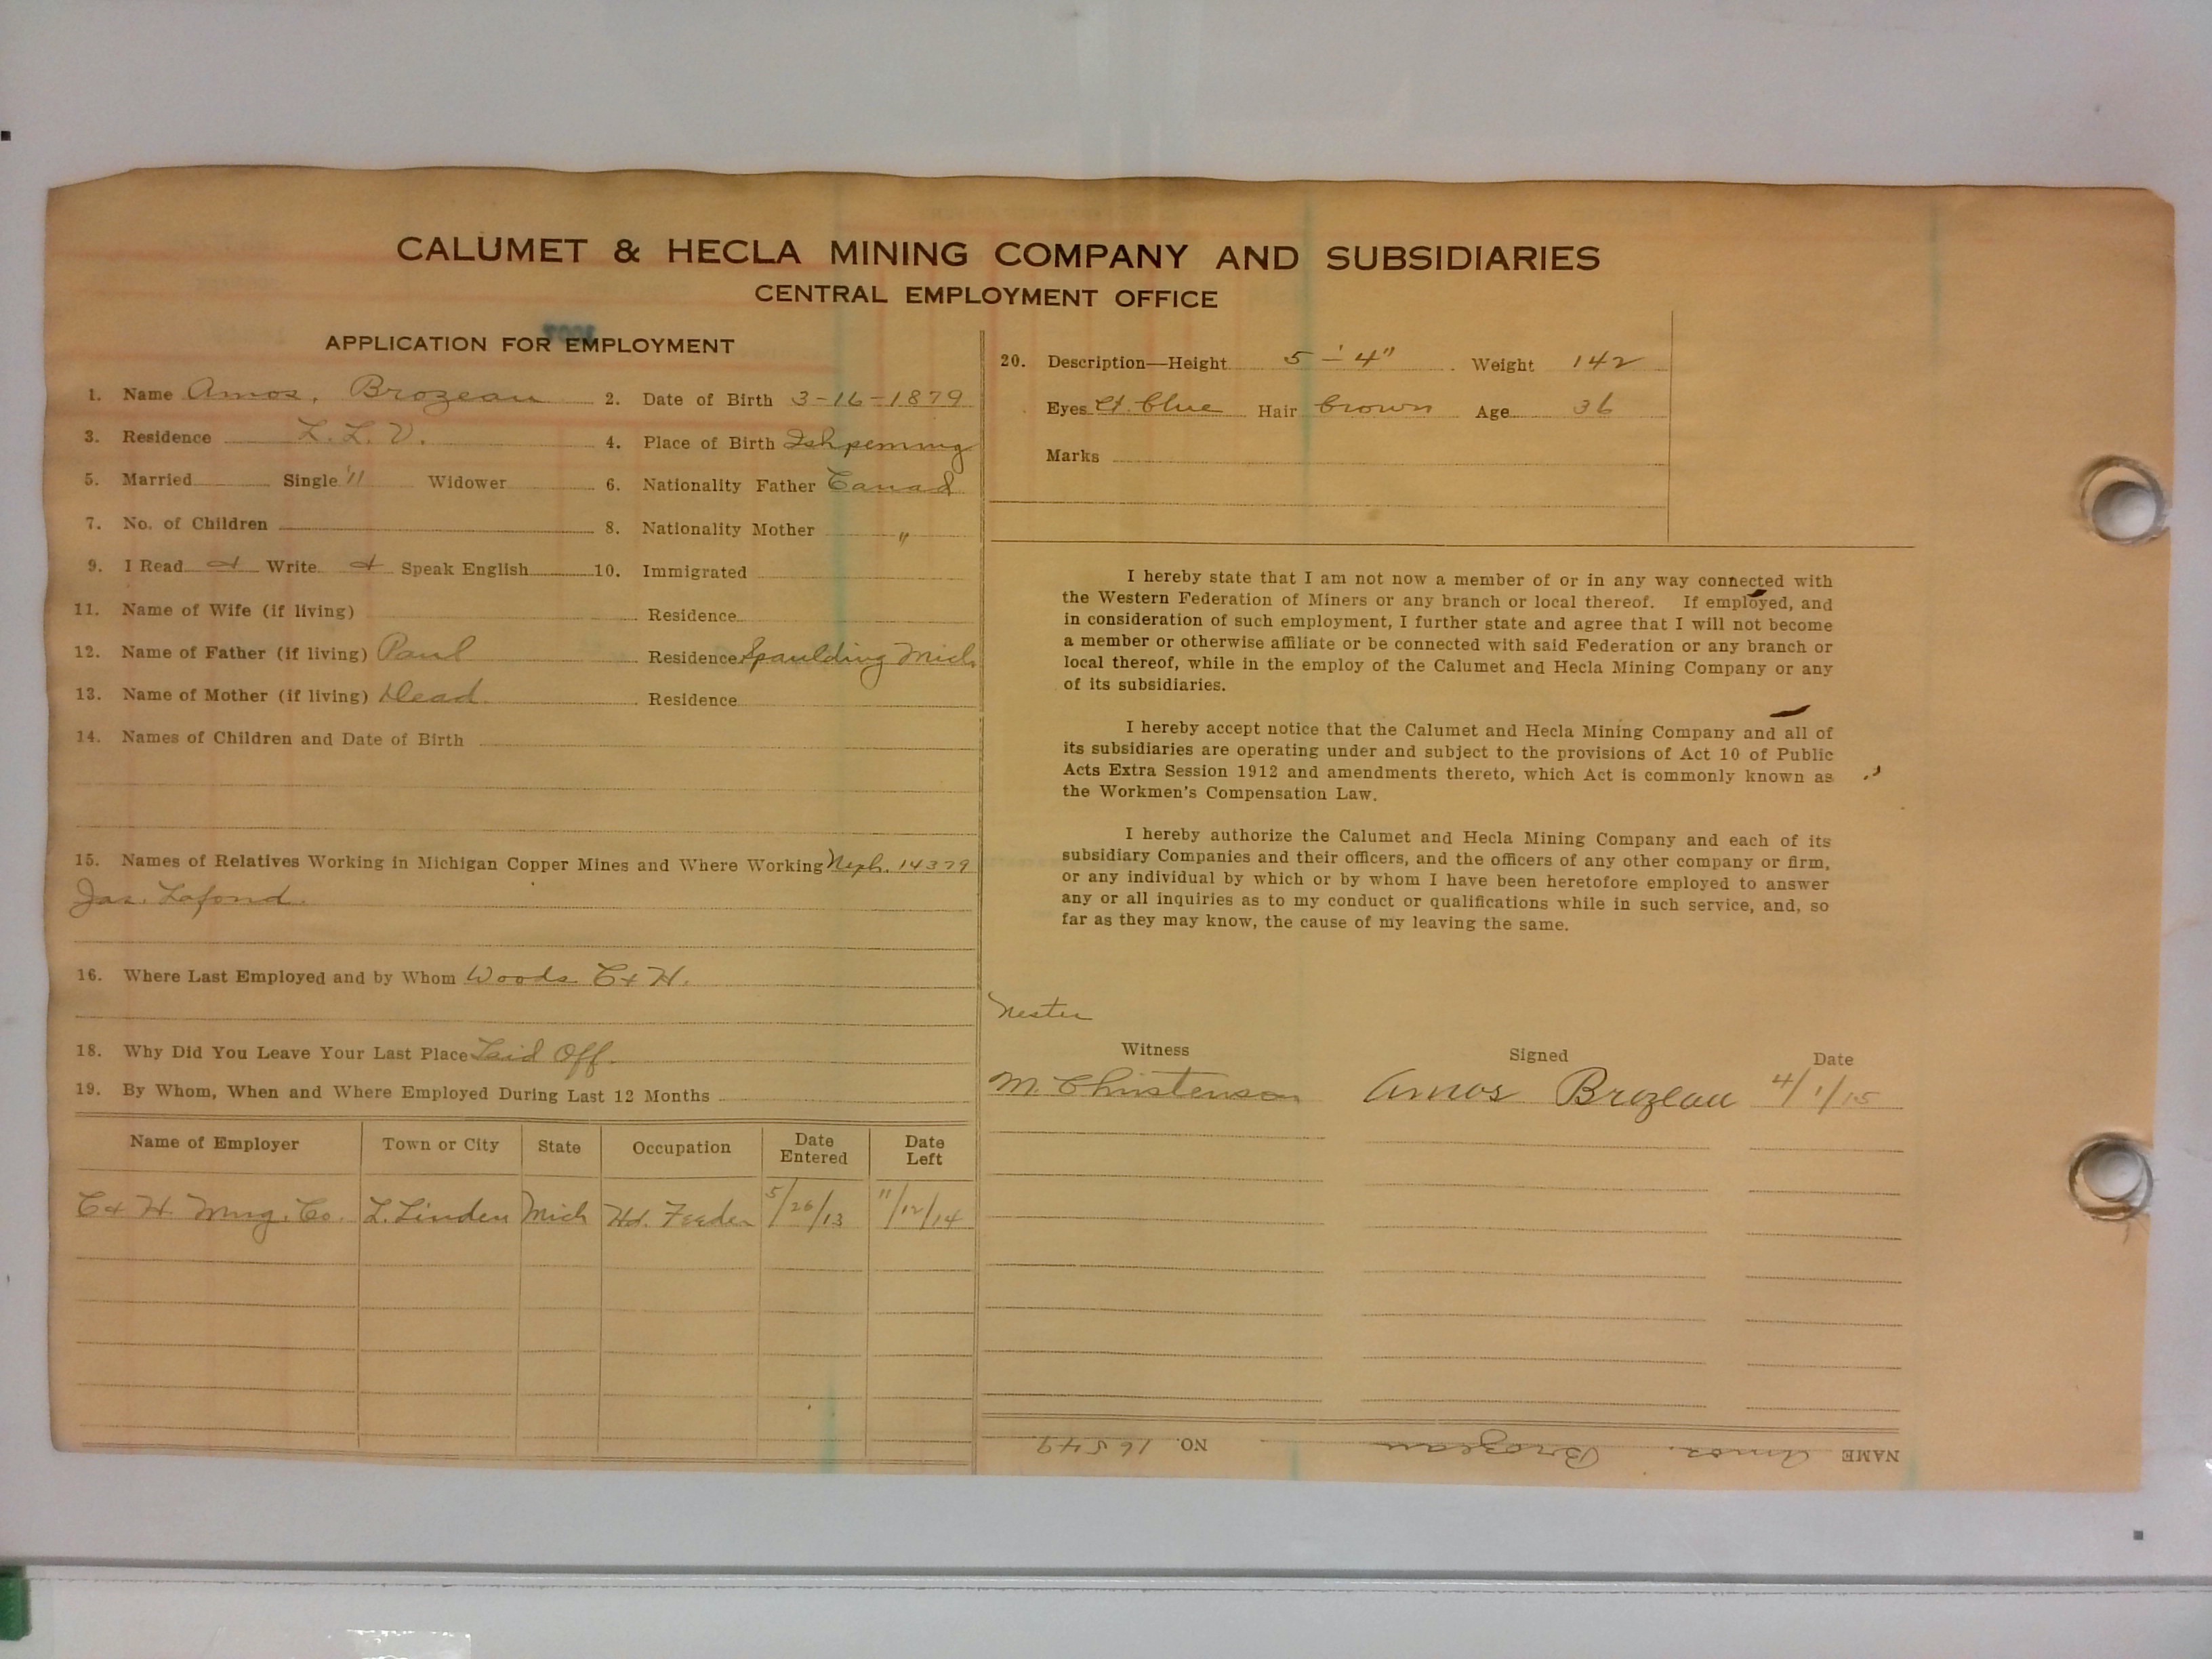 CALUMET & HECLA MINING COMPANY AND SUBSIDIARIES
CENTRAL EMPLOYMENT OFFICE
APPLICATION FOR EMPLOYMENT
1. Name Amos, Brozeau 2. Date of Birth 3-16-1879
3. Residence L. L. V. 4. Place of Birth Ishpeming
5. Married Single " Widower 6. Nationality Father Canad
7. No. of Children 8. Nationality Mother "
9. I Read & Write & Speak English 10. Immigrated
11. Name of Wife (if living) Residence
12. Name of Father (if living) Paul Residence Spaulding Mich
13. Name of Mother (if living) Dead Residence
14. Names of Children and Date of Birth
15. Names of Relatives Working in Michigan Copper Mines and Where Working Neph. 14379
Jas. Lafond.
16. Where Last Employed and by Whom Woods C & H.
18. Why Did You Leave Your Last Place Laid Off.
19. By Whom, When and Where Employed During Last 12 Months
Name of Employer Town or City State Occupation Date Entered Date Left
C & H. Mng. Co. L. Linden Mich Hd. Feeder 5/26/13 11/12/14
20. Description—Height 5'-4" Weight 142
Eyes Lt. blue Hair brown Age 36
Marks
I hereby state that I am not now a member of or in any way connected with
the Western Federation of Miners or any branch or local thereof. If employed, and
in consideration of such employment, I further state and agree that I will not become
a member or otherwise affiliate or be connected with said Federation or any branch or
local thereof, while in the employ of the Calumet and Hecla Mining Company or any
of its subsidiaries.
I hereby accept notice that the Calumet and Hecla Mining Company and all of
its subsidiaries are operating under and subject to the provisions of Act 10 of Public
Acts Extra Session 1912 and amendments thereto, which Act is commonly known as
the Workmen's Compensation Law.
I hereby authorize the Calumet and Hecla Mining Company and each of its
subsidiary Companies and their officers, and the officers of any other company or firm,
or any individual by which or by whom I have been heretofore employed to answer
any or all inquiries as to my conduct or qualifications while in such service, and, so
far as they may know, the cause of my leaving the same.
Nester
Witness Signed Date
M. Christenson Amos Brozeau 4/1/15
NAME Amos. Brozeau NO. 16549